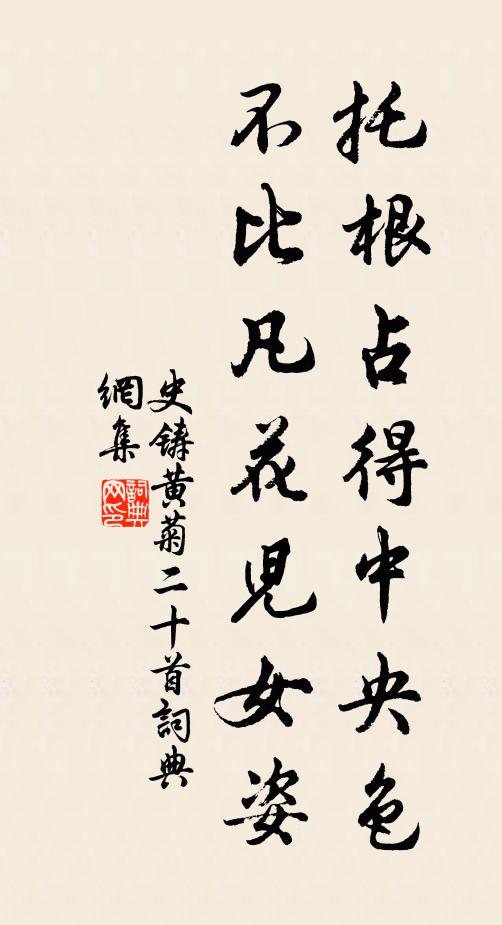 托根占得中央色
不比凡花児女姿
史鑄黃菊二十首詞典
網集
詞典網印